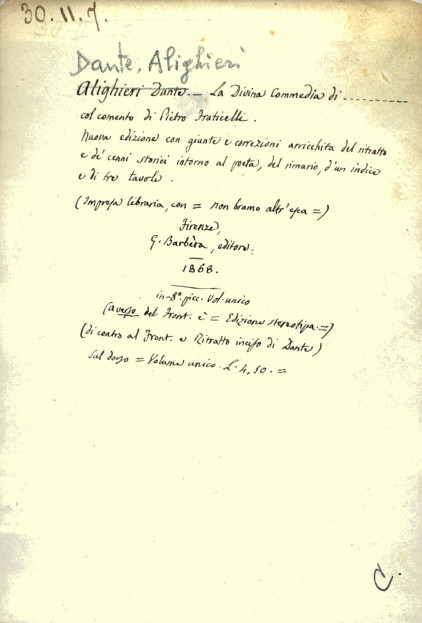 30.11.7.
Dante, Alighieri
Alighieri Dante. — La Divina Commedia di ----------
col comento di Pietro Fraticelli.
Nuova edizione con giunte e correzioni arricchita del ritratto
e de' cenni storici intorno al poeta, del rimario, d'un indice
e di tre tavole.
(Impresa libraria, con = non bramo altr'esca =)
Firenze,
G. Barbèra, editore.
1868.
in-8º. picc. Vol. unico
(a verso del Front. è = Edizione stereotipa. =)
(di contro al Front. è Ritratto inciso di Dante)
Sul dorso = Volume unico. L. 4,50. =
C.